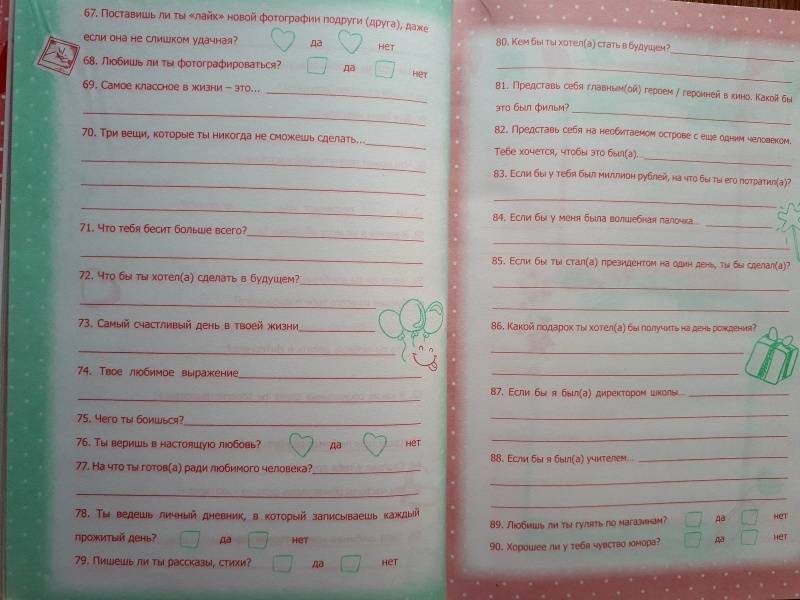 67. Поставишь ли ты «лайк» новой фотографии подруги (друга), даже
если она не слишком удачная? да нет
68. Любишь ли ты фотографироваться? да нет
69. Самое классное в жизни – это...
70. Три вещи, которые ты никогда не сможешь сделать...
71. Что тебя бесит больше всего?
72. Что бы ты хотел(а) сделать в будущем?
73. Самый счастливый день в твоей жизни
74. Твое любимое выражение
75. Чего ты боишься?
76. Ты веришь в настоящую любовь? да нет
77. На что ты готов(а) ради любимого человека?
78. Ты ведешь личный дневник, в который записываешь каждый
прожитый день? да нет
79. Пишешь ли ты рассказы, стихи? да нет
80. Кем бы ты хотел(а) стать в будущем?
81. Представь себя главным(ой) героем / героиней в кино. Какой бы
это был фильм?
82. Представь себя на необитаемом острове с еще одним человеком.
Тебе хочется, чтобы это был(а)...
83. Если бы у тебя был миллион рублей, на что бы ты его потратил(а)?
84. Если бы у меня была волшебная палочка...
85. Если бы ты стал(а) президентом на один день, ты бы сделал(а)?
86. Какой подарок ты хотел(а) бы получить на день рождения?
87. Если бы я был(а) директором школы...
88. Если бы я был(а) учителем...
89. Любишь ли ты гулять по магазинам? да нет
90. Хорошее ли у тебя чувство юмора? да нет